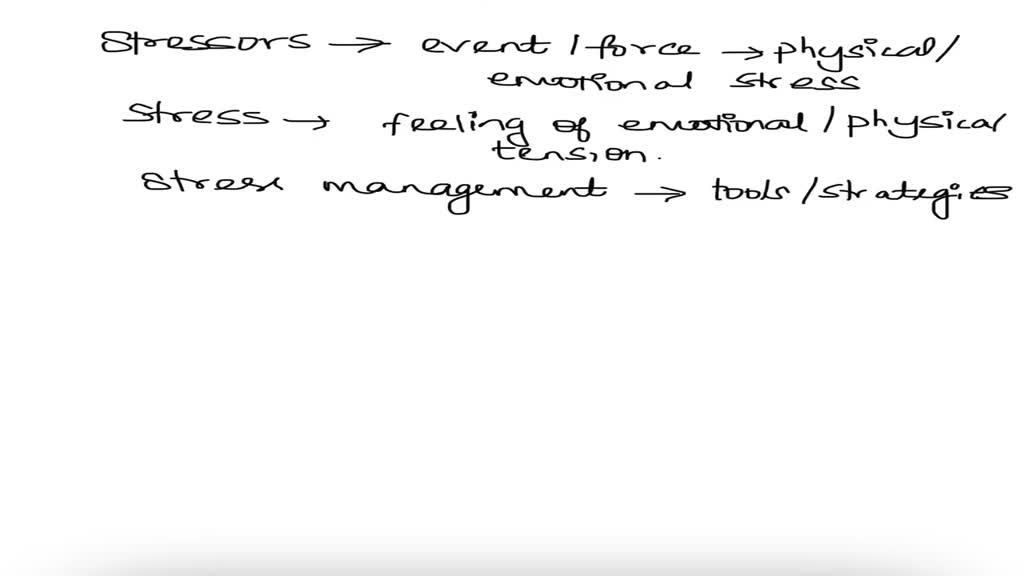 Stressors → event / force → physical/
emotional stress
Stress → feeling of emotional / physical
tension.
Stress management → tools / strategies